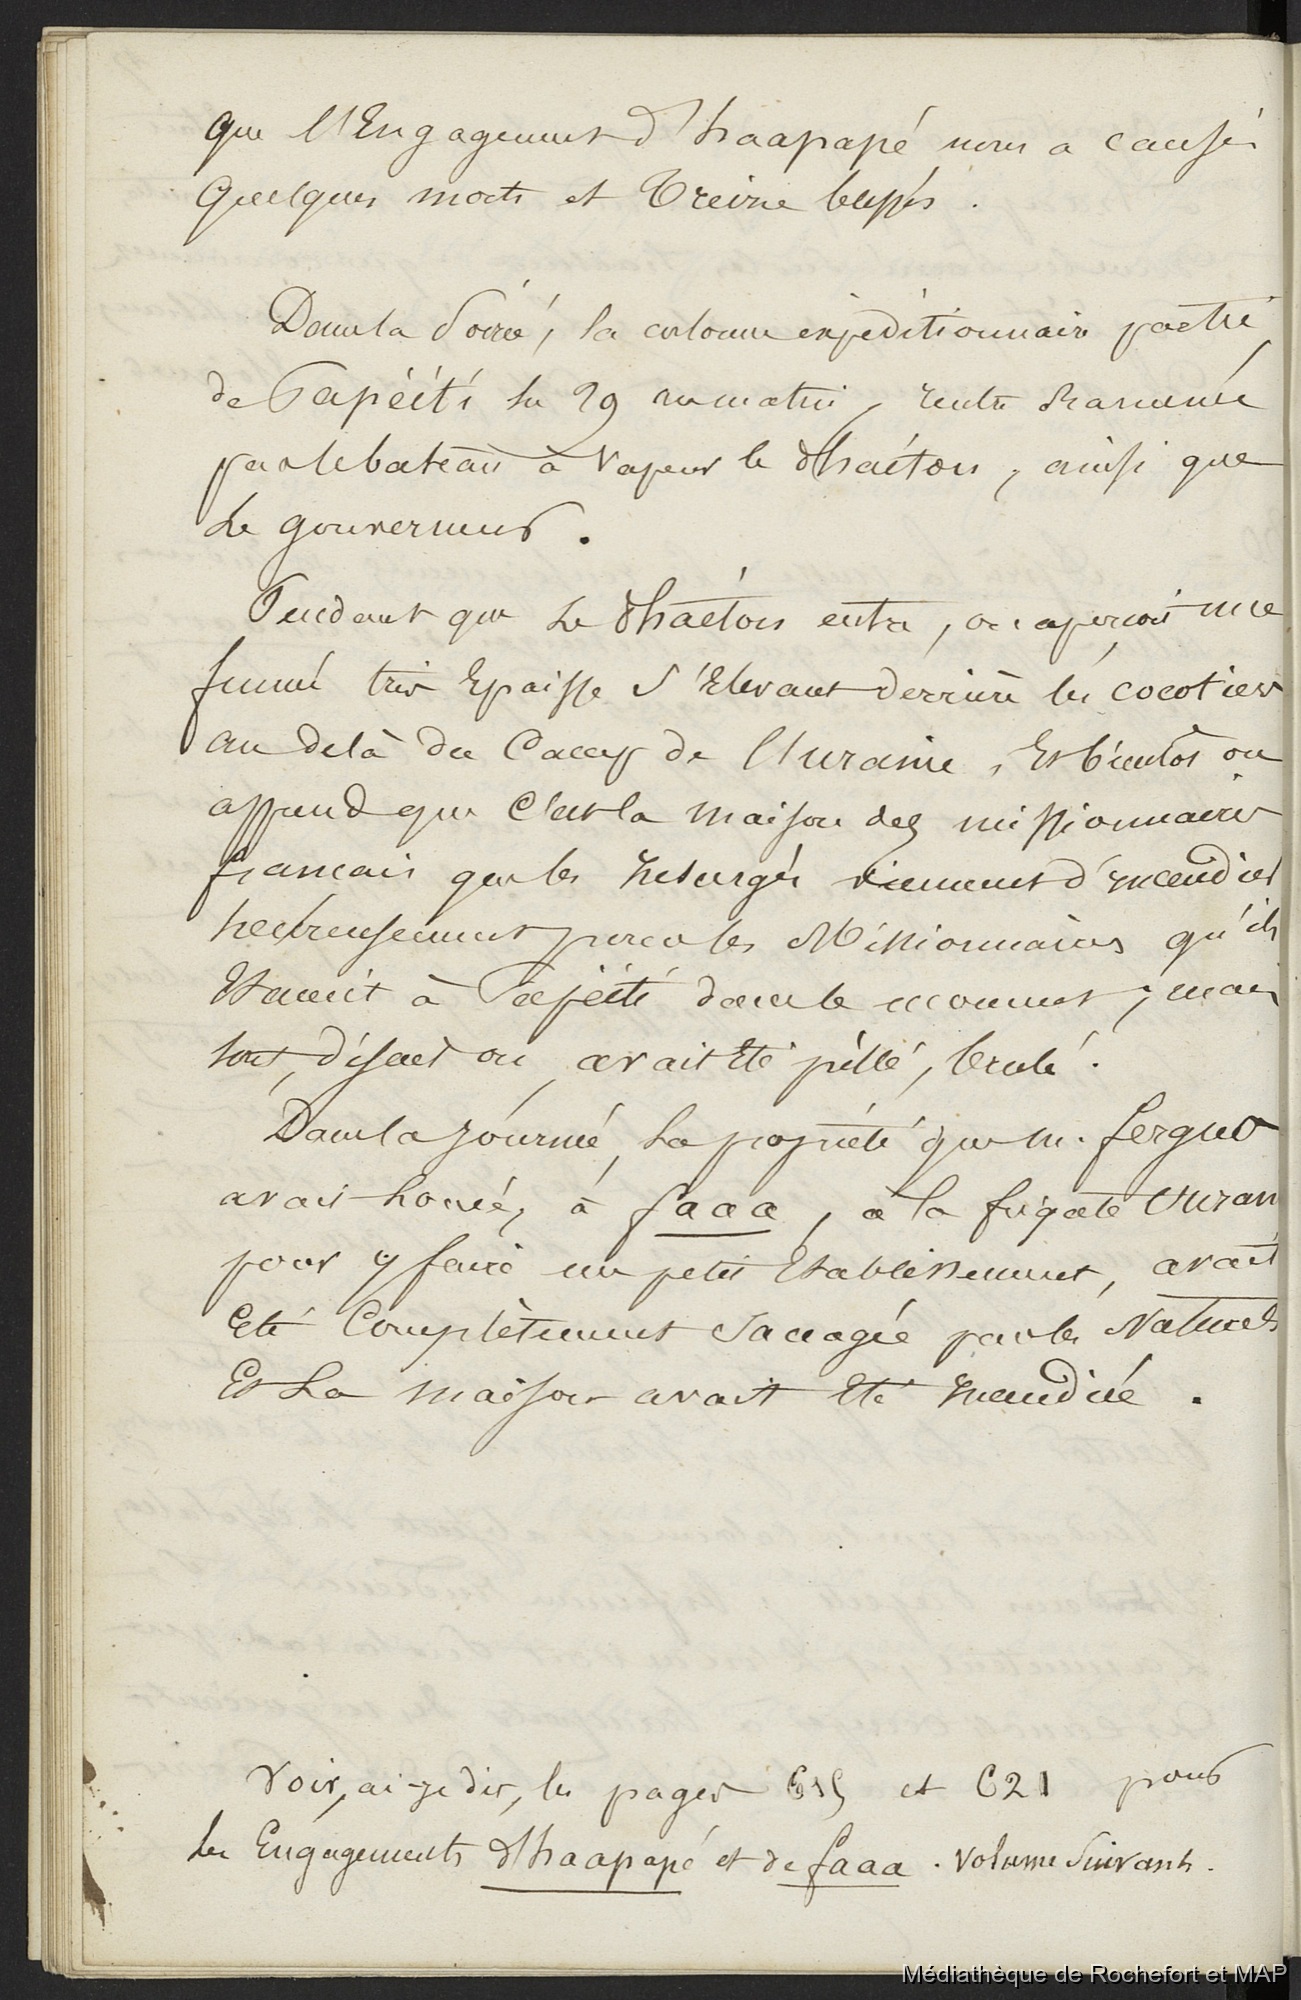 que l'Engagement d'haapapé nous a causé
quelques morts et Treize blessés.
Dans la Soirée, la colonne expéditionnaire partie
de Papéiti le 29 au matin, rentre ramenée
par le bateau à vapeur le Phaéton, ainsi que
le gouverneur.
Pendant que le Phaéton entre, on aperçoit une
fumée très Epaisse s'Elevant derrière les cocotiers
au delà du Camp de l'uranie, Et bientôt on
apprend que C'est la maison des missionnaires
francais que les Insurgés viennent d'incendier
heureusement pour les Missionnaires qu'ils
Etaient à Papéiti dans le moment; mais
tout, disait on, avait Eté pillé, brulé.
Dans la journée, la propriété que m. fergus
avait louée, à faaa, à la frégate Uran
pour y faire un petit Etablissement, avait
Eté Complètement Saccagée par les Naturels
Et la maison avait Eté Incendiée.
Voir, ai-je dit, les pages 615 et 621 pour
les Engagements d'haapapé et de faaa. volume Suivant.
Médiathèque de Rochefort et MAP